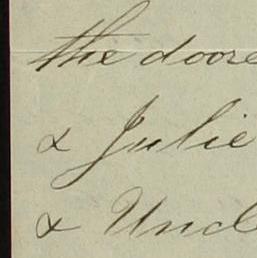 the doore
& Julie
& Uncl